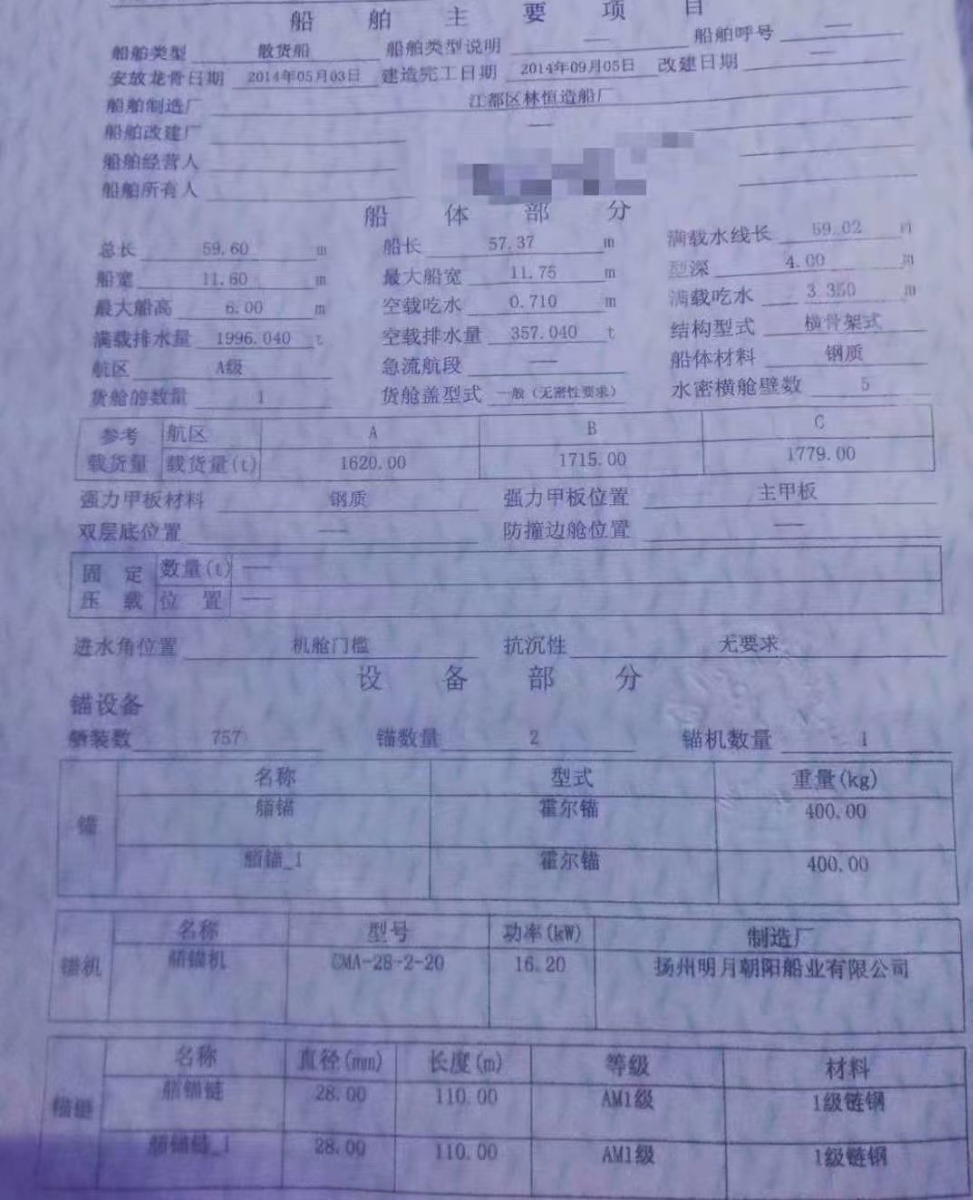 船舶主要项目
船舶类型 散货船 船舶类型说明 — 船舶呼号 —
安放龙骨日期 2014年05月03日 建造完工日期 2014年09月05日 改建日期 —
船舶制造厂 江都区林恒造船厂
船舶改建厂 —
船舶经营人
船舶所有人
船体部分
总长 59.60 m 船长 57.37 m 满载水线长 59.02 m
船宽 11.60 m 最大船宽 11.75 m 型深 4.00 m
最大船高 6.00 m 空载吃水 0.710 m 满载吃水 3.350 m
满载排水量 1996.040 t 空载排水量 357.040 t 结构型式 横骨架式
航区 A级 急流航段 — 船体材料 钢质
货舱的数量 1 货舱盖型式 一般（无密性要求） 水密横舱壁数 5
参考载货量 航区 A B C
载货量(t) 1620.00 1715.00 1779.00
强力甲板材料 钢质 强力甲板位置 主甲板
双层底位置 — 防撞边舱位置 —
固定压载 数量(t) —
位置 —
进水角位置 机舱门槛 抗沉性 无要求
设备部分
锚设备
舾装数 757 锚数量 2 锚机数量 1
锚 名称 型式 重量(kg)
艏锚 霍尔锚 400.00
艏锚_1 霍尔锚 400.00
锚机 名称 型号 功率(kW) 制造厂
艏锚机 CMA-28-2-20 16.20 扬州明月朝阳船业有限公司
锚链 名称 直径(mm) 长度(m) 等级 材料
艏锚链 28.00 110.00 AM1级 1级链钢
艏锚链_1 28.00 110.00 AM1级 1级链钢